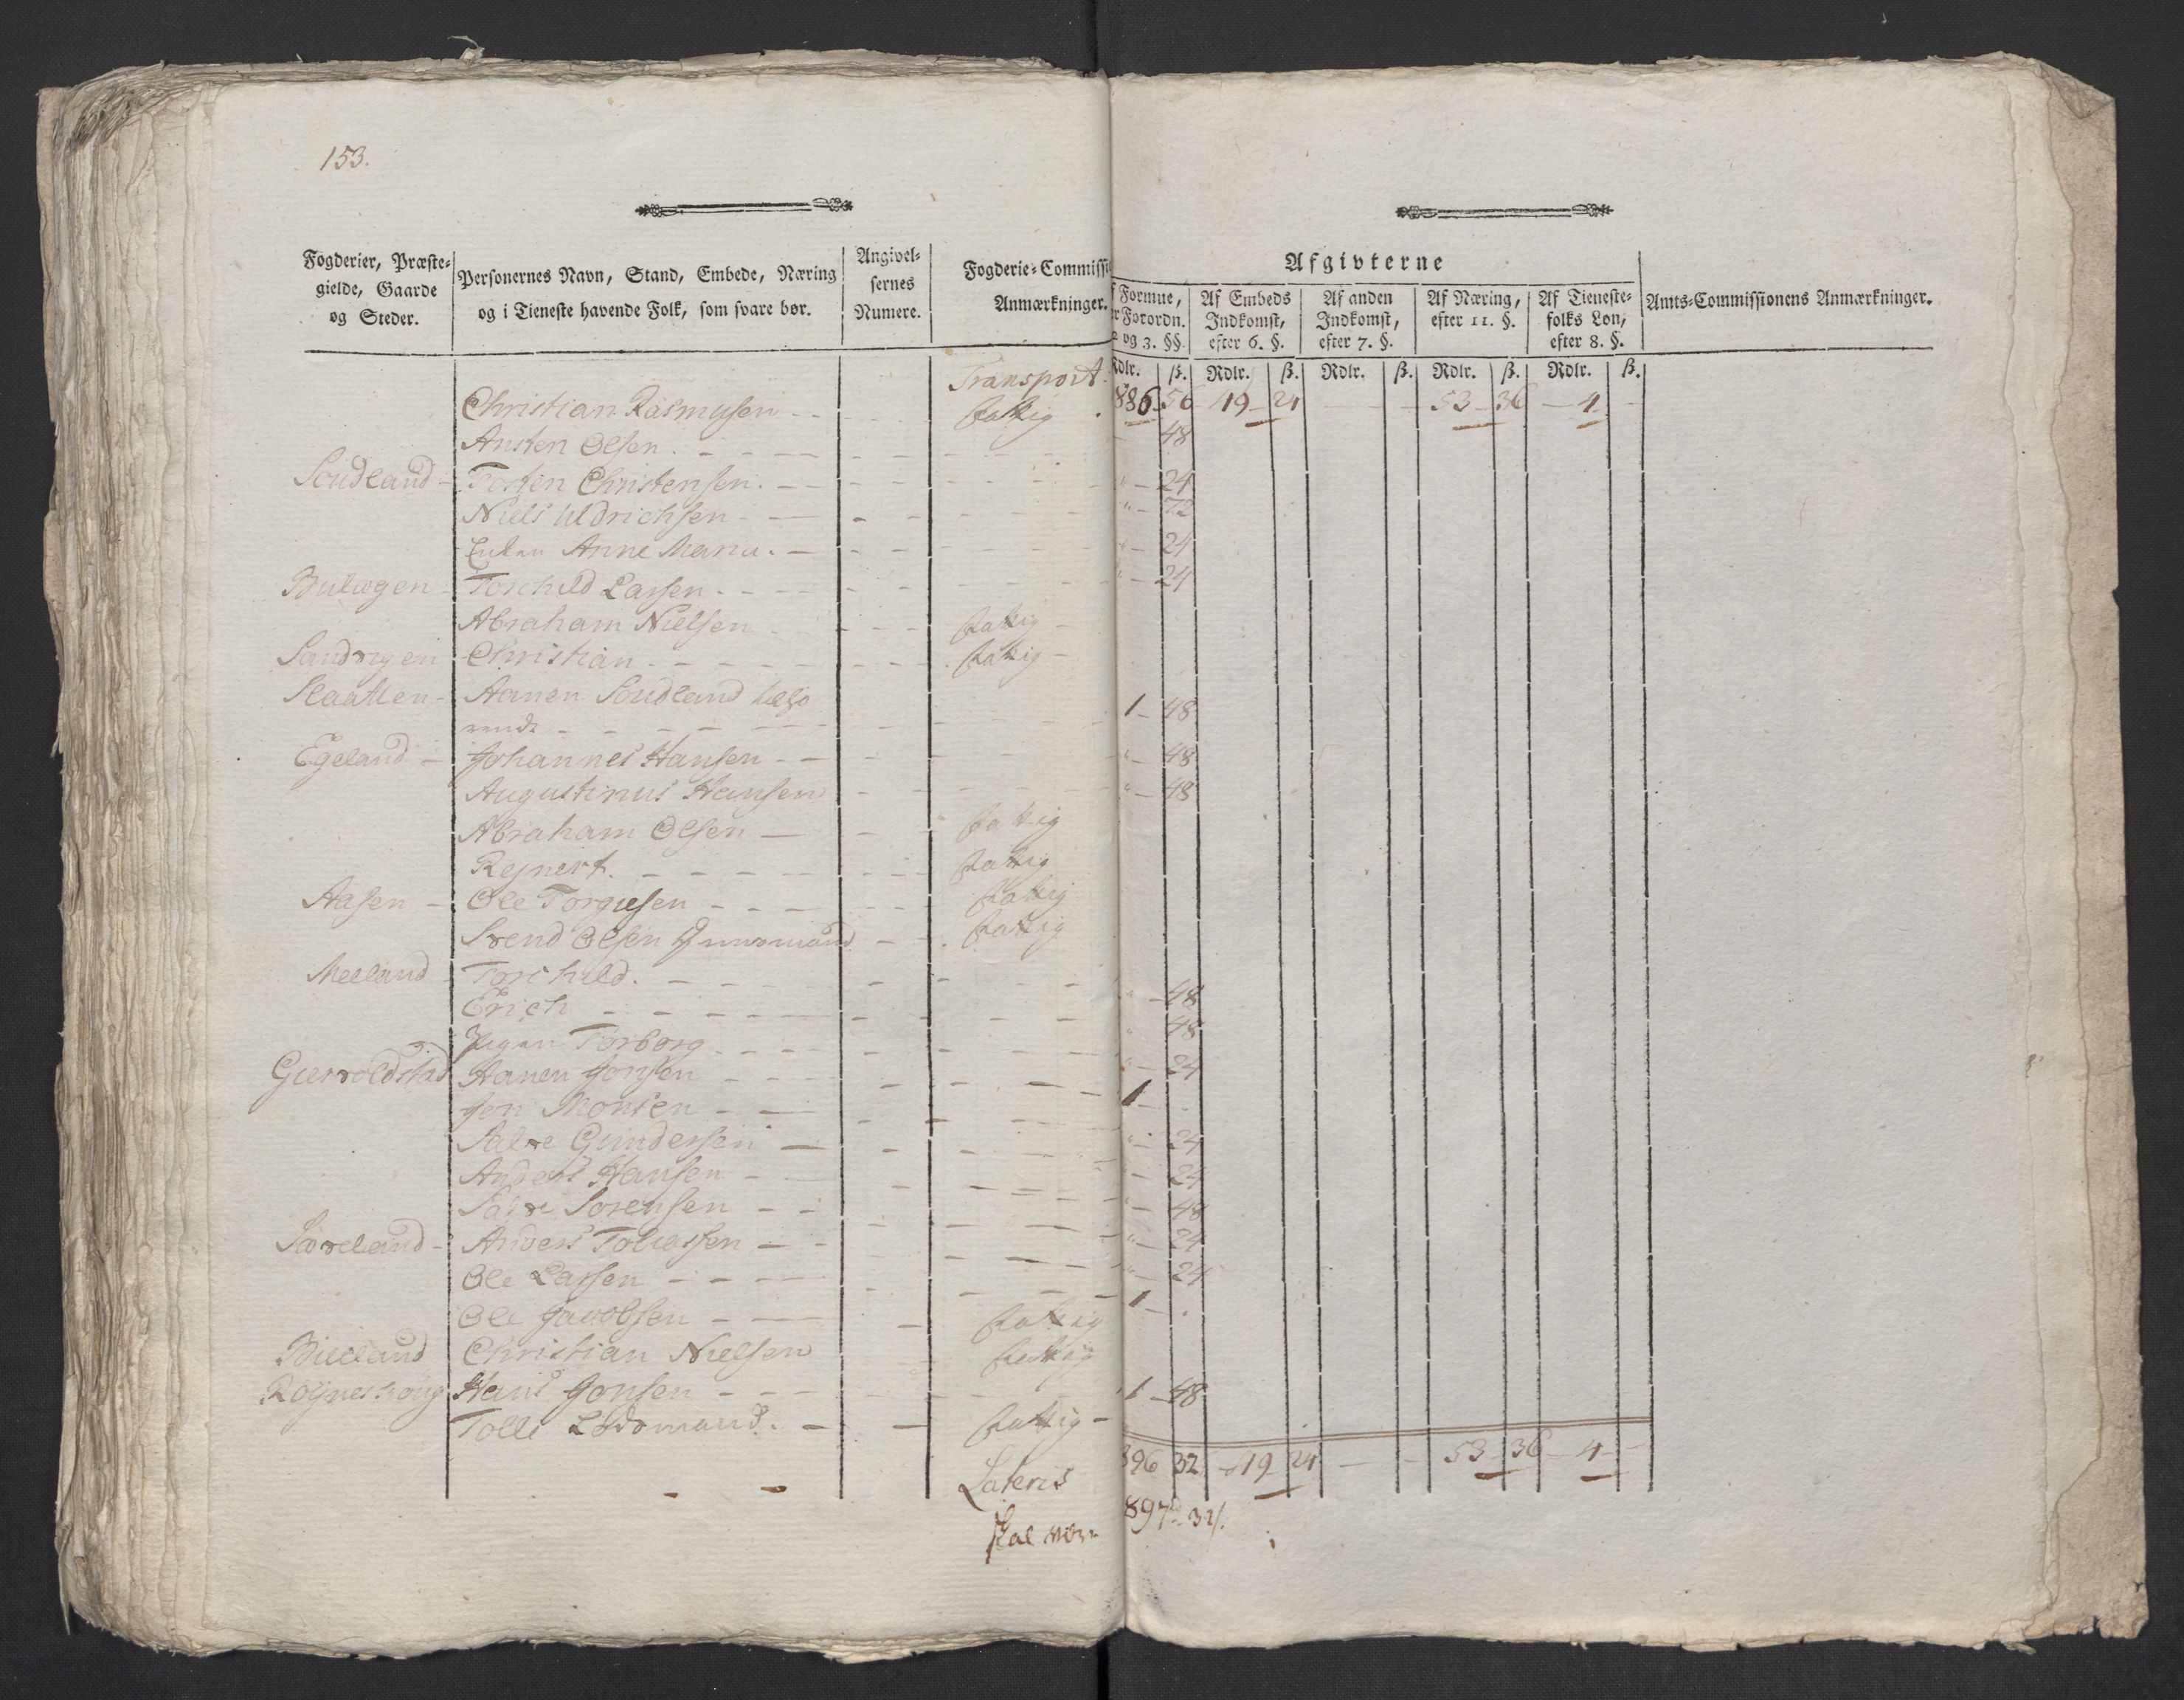 153.
Fogderier, Præste-
gielde, Gaarde
og Steder.
Personernes Navn, Stand, Embede, Næring
og i Tieneste havende Folk, som svare bør.
Angivel-
sernes
Numere.
Fogderie-Commissi
Anmærkninger.
Afgivterne
Formue,
Forordn.
2 og 3. §§.
Af Embeds
Indkomst,
efter 6. §.
Af anden
Indkomst,
efter 7. §.
Af Næring,
efter 11. §.
Af Tieneste-
folks Løn,
efter 8. §.
Amts-Commissionens Anmærkninger.
Rdlr. ß. Rdlr. ß. Rdlr. ß. Rdlr. ß. Rdlr. ß.
Transport 886 56 19 24 - - 53 36 4 -
Christian Rasmusen - - fattig
Austen Olsen - - 48
Soudland - Tosten Christensen - - 24
Niels Uldrichsen - - 72
Enken Anne Maria - 24
Torchild Larsen - - 24
Abraham Nielsen - fattig
Christian - - fattig
Slaatten - Aanen Soudland
- - 1 - 48
Egeland - Johannes Hansen - - 48
Augustinus Hansen - 48
Abraham Olsen - fattig
Rejnert - - fattig
Aasen - Ole Torgiesen - - fattig
Svend Olsen - fattig
Meeland - Torchild - - 48
Erich - - 48
Torborg - - 24
Gierroldstad Aanen Jonsen - - 1 -
Jon Monsen - - 24
Salve Gundersen - 24
Anders Hansen - 48
Salve Sorensen - - 24
Anders Tobiassen - - 24
Ole Larsen - - 1 -
Ole Jacobsen - - fattig
Bieeland Christian Nielsen fattig
Hans Jonsen - - 1 - 48
Tolle - - fattig -
Lateris 896 32 19 24 - - 53 36 4 -
skal være 897 32